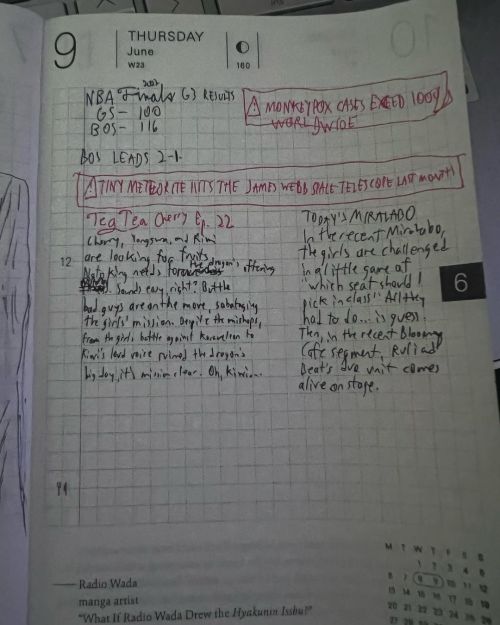 9
THURSDAY
June
W23
160
NBA Finals 2022 G3 RESULTS
GS - 100
BOS - 116
BOS LEADS 2-1
⚠ MONKEYPOX CASES EXCEED 1000
WORLDWIDE
⚠ TINY METEORITE HITS THE JAMES WEBB SPACE TELESCOPE LAST MONTH
Tea Tea Cherry Ep. 22
Cherry, Yongsun, and Kiwi
are looking for fruits
king needs for the dragon's offering
Sounds easy, right? But the
bad guys are on the move, sabotaging
the girls' mission. Despite the mishaps,
from the girls battle against to
Kiwi's loud voice ruined the dragon's
big day, it's mission clear. Oh, Kiwi...
12
TODAY'S MIRALABO
In the recent Miralabo,
the girls are challenged
in a little game of
"which seat should I
pick in class". All they
had to do... is guess.
Then, in the recent Blooming
Cafe segment, Ruli and
Beat's duo unit comes
alive on stage.
6
Radio Wada
manga artist
"What If Radio Wada Drew the Hyakunin Isshu?"
M T W T F S S
1 2 3 4 5
6 7 8 9 10 11 12
13 14 15 16 17 18 19
20 21 22 23 24 25 26